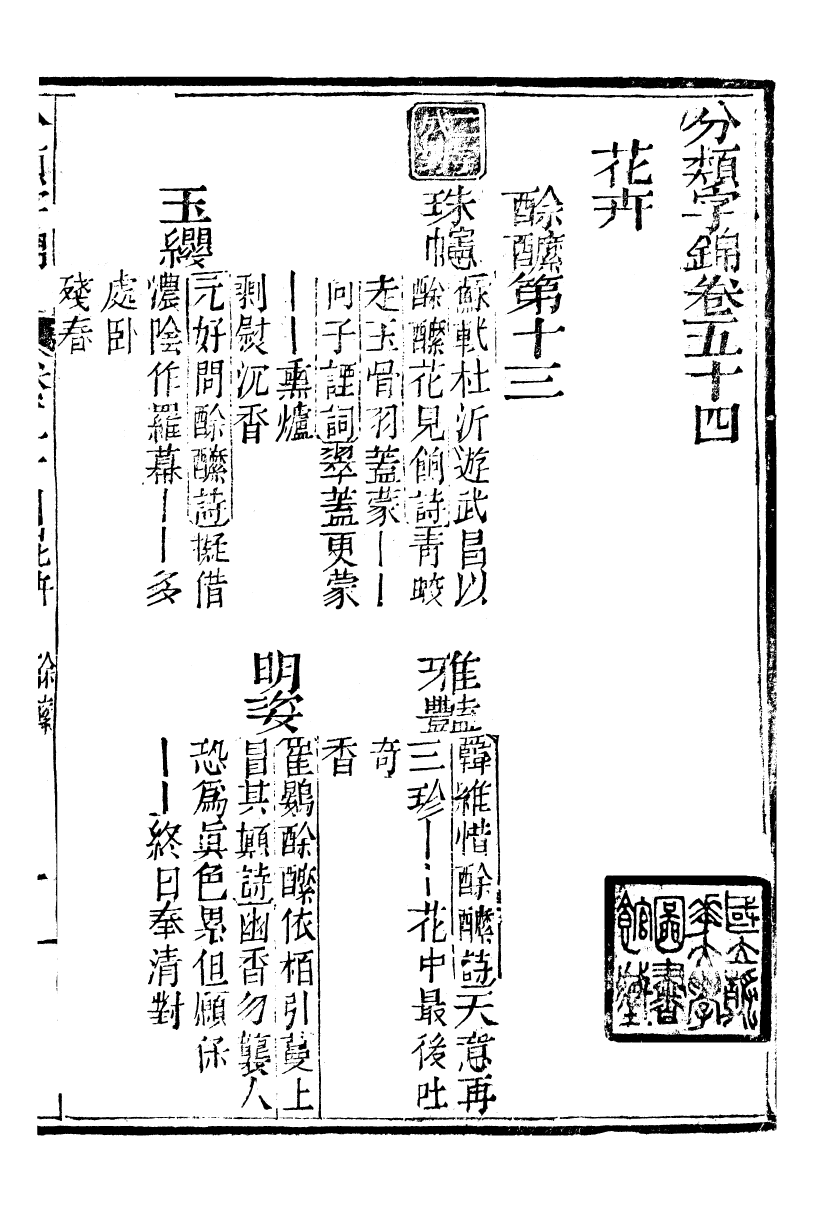 分類字錦卷五十四
花卉
酴醾第十三
珠幰
蘇軾杜沂遊武昌以
酴醾花見餉詩青蛟
走玉骨羽蓋蒙丨丨
向子諲詞翠蓋更蒙
丨丨熏爐
剩熨沉香
雅豔
韓維惜酴醾詩天意再
三珍丨丨花中最後吐
奇
香
玉纓
元好問酴醾詩擬借
濃陰作羅幕丨丨多
處臥
殘春
明姿
崔鶠酴醾依栢引蔓上
冒其顛詩幽香勿襲人
恐爲眞色累但願保
丨丨終日奉清對
分類字錦 卷五十四花卉 酴醾 一
國立清
華大學
圖書
館藏